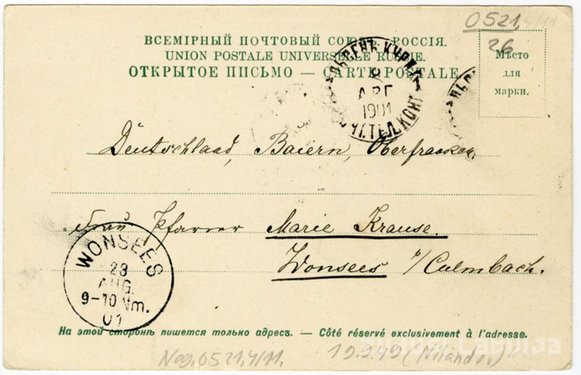 0521,4/11
26
ВСЕМІРНЫЙ ПОЧТОВЫЙ СОЮЗЪ. РОССІЯ.
UNION POSTALE UNIVERSELLE RUSSIE.
ОТКРЫТОЕ ПИСЬМО — CARTE POSTALE
Мѣсто
для
марки.
АРГ
1901
Deutschland, Baiern, Oberfranken
Frau Pfarrer Marie Krause.
Wonsees b/Culmbach.
WONSEES
23
AUG.
9-10 Nm.
01
На этой сторонѣ пишется только адресъ. — Côté réservé exclusivement à l'adresse.
Neg.0521,4/11.
19.9.49 (Nilander)